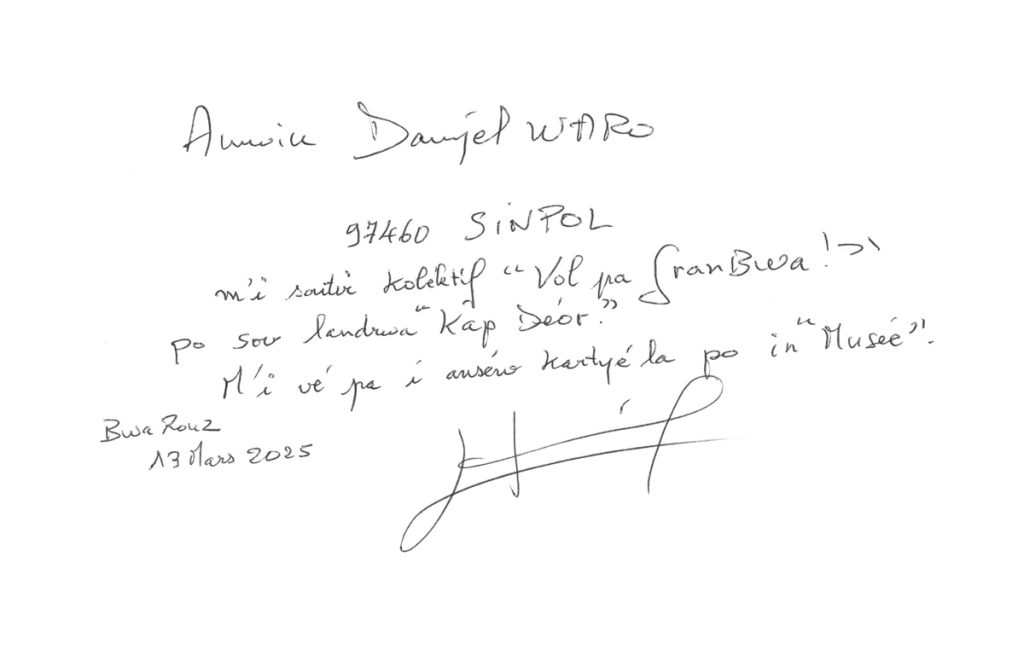 Danyèl WARO
97460 SiNPOL
m'i soutir kolektif “Vol pa GranBwa!”
po sov landrwa “Kâp Déor.”
M'i vé pa i ansèrv kartyé la po in “Musée”.
Bwa Rouz
13 Mars 2025